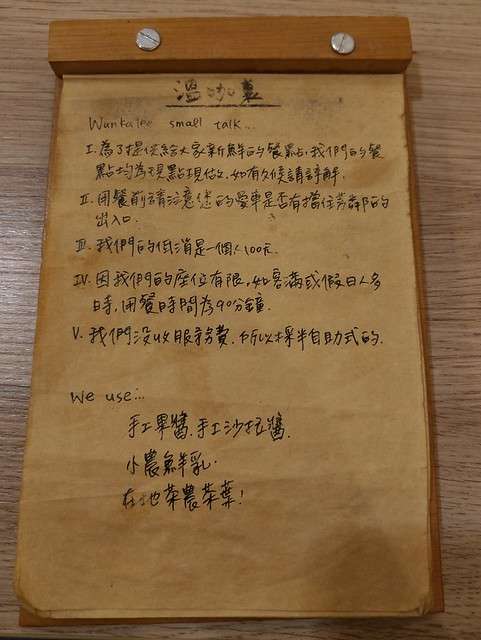 溫咖裏
Wunkalee small talk...
I. 為了提促給大家新鮮的餐點, 我們的餐
點均為現點現做, 如有久候請諒解.
II. 用餐前請注意您的愛車是否有擋住芳鄰的
出入口.
III. 我們的低消是一個人100元.
IV. 因我們的座位有限, 如客滿或假日人多
時, 用餐時間為90分鐘.
V. 我們沒收服務費, 所以採半自助式的.
We use...
手工果醬. 手工沙拉醬.
小農鮮乳.
在地茶農茶葉!